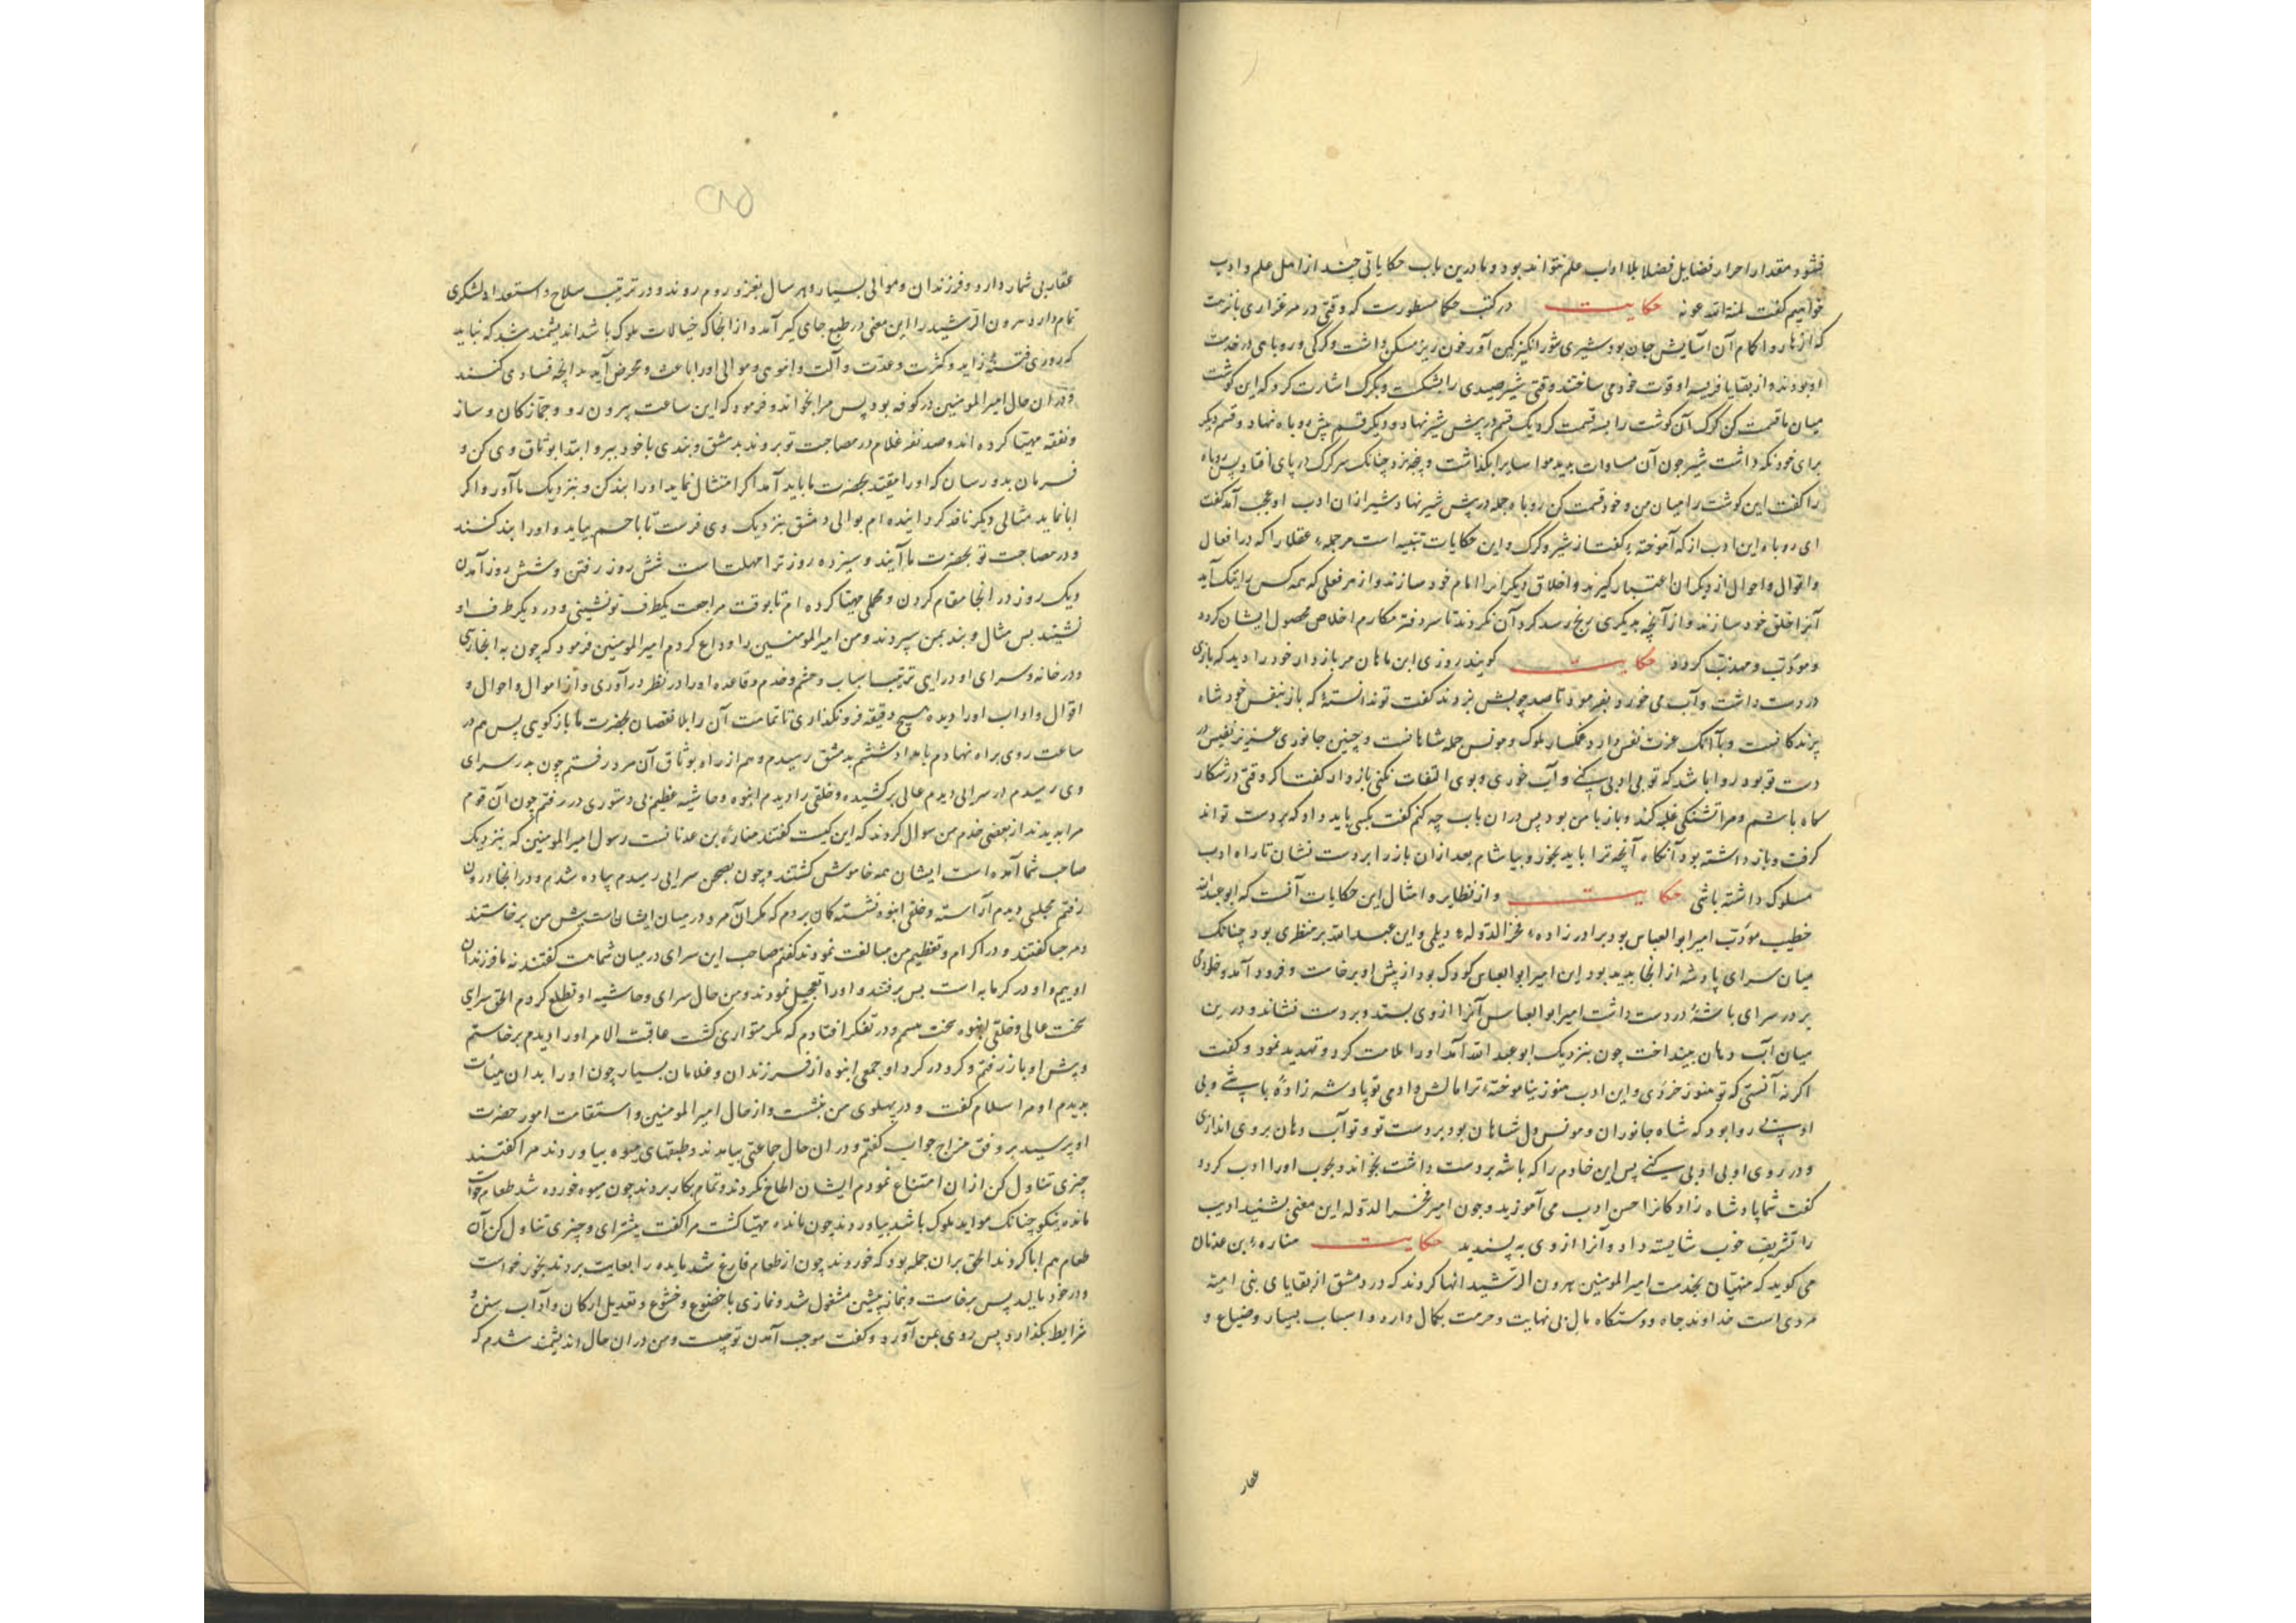 قشود مقدار احرار فضایل فضلا بلا اداب علم نتواند بود و ما درین باب حکایاتی چند از اهل علم و ادب
خواهیم کفت لمنة الله عونه حکایت در کتب حکما مسطورست که وقتی در مرغزاری بانزهت
که ازهار و اکام آن آسایش جان بود شیری شورانکیز کین آور خون ریز مسکن داشت و کرکی و روباهی در خدمت
او بودند و از بقایا فریسه او قوت خود می ساختند وقتی شیر صیدی را بشکست و بکرک اشارت کرد که این کوشت
میان ما قسمت کن کرک آن کوشت را بسه قسمت کرد یک قسم در پیش شیر نهاد و دیکر قسم پیش روباه نهاد و قسم دیکر
برای خود نکه داشت شیر چون آن مساوات بدید مواسا را بکذاشت و پنجه بزد چنانک سر کرک در پای افتاد پس روباه
را کفت این کوشت را میان من و خود قسمت کن روباه جمله در پیش شیر نهاد شیر ازان ادب او عجب آمد کفت
ای روباه این ادب از که آموختهٔ کفت از شیر و کرک و این حکایات تنبیه است مر جملهٔ عقلا را که در افعال
و اقوال و احوال از دیکران اعتبار کیرند و اخلاق دیکرانرا امام خود سازند و از هر فعلی که همه کس را نیک آید
آنرا خلق خود سازند و از آنچه بدیکری رنج رسد کرد آن نکردند تا سر دفتر مکارم اخلاص محصول ایشان کردد
و مودب و مهذب کردد حکایت کویند روزی ابن ماهان مر بازدار خود را دید که بازی
در دست داشت و آب می خورد بفرمود تا صد چوبش بزدند کفت تو ندانستهٔ که باز بنفس خود شاه
پرندکانست و با آنک عزت نفس دارد غمکسار ملوک و مونس جمله شاهانست و چنین جانوری عزیز نفیس در
دست تو بود روا باشد که تو بی ادبی کنی و آب خوری و بوی التفات نکنی بازدار کفت اکر وقتی در شکار
کاه باشم و مرا تشنکی غلبه کند و باز با من بود پس دران باب چه کنم کفت بکسی باید داد که بر دست تواند
کرفت و باز داشته بود آنکاه آنچه ترا باید بخور و بیاشام بعد ازان باز را بر دست نشان تا راه ادب
مسلوک داشته باشی حکایت و از نظایر و امثال این حکایات آنست که ابو عبدالله
خطیب مودب امیر ابوالعباس بود برادرزادهٔ فخرالدوله دیلمی و این عبدالله بر منظری بود چنانک
میان سرای پادشه از انجا بدید بود این امیر ابوالعباس کودک بود از پیش او برخاست و فرود آمد و خادمی
بر در سرای باشهٔ در دست داشت امیر ابوالعباس آنرا از وی بستد و بر دست نشاند و درین
میان آب دهان بینداخت چون بنزدیک ابو عبدالله آمد او را ملامت کرد و تهدید نمود و کفت
اکر نه آنستی که تو هنوز خردی و این ادب هنوز نیاموختهٔ ترا مالش دادمی تو پادشه زادهٔ باشی و بی
ادب روا بود که شاه جانوران و مونس دل شاهان بود بر دست تو و تو آب دهان بر وی اندازی
و در روی او بی ادبی کنی پس این خادم را که باشه بر دست داشت بخواند و بچوب او را ادب کرد و
کفت شما پادشاه زادکانرا حسن ادب می آموزید و چون امیر فخرالدوله این معنی بشنید ادیب
را تشریف خوب شایسته داد و آنرا از وی به پسندید حکایت منارهٔ بن عدنان
می کوید که منهیان بخدمت امیرالمومنین هرون الرشید انها کردند که در دمشق از بقایای بنی امیه
مردی است خداوند جاه و دستکاه مال بی نهایت و حرمت بکمال دارد و اسباب بسیار و ضیاع و
عقار
عقار بی شمار دارد و فرزندان و موالی بسیار و هر سال بغز و روم روند و در ترتیب سلاح و استعداد لشکری
تمام دارد هرون الرشید را این معنی در طبع جای کیر آمد و از انجا که خیالات ملوک باشد اندیشمند شد که نباید
که روزی فتنهٔ زاید و کثرت و عدت و آلت و انبوهی و موالی او را باعث و محرض آید بدانچه فسادی کنند
و دران حال امیرالمومنین در کوفه بود پس مرا بخواند و فرمود که این ساعت بیرون رو و جمازکان و ساز
و نفقه مهیا کرده اند و صد نفر غلام در مصاحبت تو بروند بدمشق و بندی با خود ببر و ابتدا بوثاق وی کن و
فرمان بدو رسان که او را مقید بحضرت ما باید آمد اکر امتثال نماید او را بند کن و بنزدیک ما آور و اکر
ابا نماید مثالی دیکر نافذ کردانیده ام بوالی دمشق بنزدیک وی فرست تا با حشم بیاید و او را بند کنند
و در مصاحبت تو بحضرت ما آیند و سیزده روز ترا مهلت است شش روز رفتن و شش روز آمدن
و یک روز در انجا مقام کردن و محملی مهیا کرده ام تا بوقت مراجعت یکطرف تو نشینی و در دیکر طرف او
نشیند پس مثال و بند بمن سپردند و من امیرالمومنین را وداع کردم امیرالمومنین فرمود که چون به انجا رسی
و در خانه و سرای او در ایی ترتیب اسباب و حشم و خدم و قاعده او را در نظر در آوری و از اموال و احوال و
اقوال و اداب او را دیده هیچ دقیقه فرو نکذاری تا تمامت آن را بلا نقصان بحضرت ما باز کویی پس هم در
ساعت روی براه نهادم بامداد ششم بدمشق رسیدم و هم از راه بوثاق آن مرد رفتم چون بدر سرای
وی رسیدم در سرایی دیدم عالی برکشیده و خلقی را دیدم انبوه و حاشیه عظیم بی دستوری در رفتم چون آن قوم
مرا بدیدند از بعضی خدم من سوال کردند که این کیست کفتند منارهٔ بن عدنانست رسول امیرالمومنین که بنزدیک
صاحب شما آمده است ایشان همه خاموش کشتند و چون بصحن سرایی رسیدم پیاده شدم و در انجا درون
رفتم مجلسی دیدم آراسته و خلقی انبوه نشسته کمان بردم که مکر آن مرد در میان ایشان است پیش من برخاستند
و مرحبا کفتند و در اکرام و تعظیم من مبالغت نمودند کفتم صاحب این سرای در میان شماست کفتند نه ما فرزندان
اوییم و او در کرمابه است پس برفتند و او را تعجیل نمودند و من حال سرای و حاشیه او تطلع کردم الحق سرای
سخت عالی و خلقی انبوه سخت و در تفکر افتادم که مکر متواری کشت عاقبت الامر او را دیدم برخاستم
و پیش او باز رفتم و کرد در کرد او جمعی انبوه از فرزندان و غلامان بسیار چون او را بدان هیات
بدیدم او مرا سلام کفت و در پهلوی من بنشست و از حال امیرالمومنین و استقامت امور حضرت
او پرسید بر وفق مزاج جواب کفتم و دران حال جماعتی بیامدند و طبقهای میوه بیاوردند مرا کفتند
چیزی تناول کن ازان امتناع نمودم ایشان الحاح نکردند و تمام بکار بردند چون میوه خورده شد طعام خواست
مایده نیکو چنانک مواید ملوک باشد بیاوردند چون مایده مهیا کشت مرا کفت پیشتر ای و چیزی تناول کن آن
طعام هم ابا کردند الحق بران جمله بود که خوردند چون از طعام فارغ شد مایده را بغایت بردند بخور خواست
و در خود مالید پس برخاست و بنماز پیشین مشغول شد و نمازی با خضوع و خشوع و تعدیل ارکان و آداب سنن و
شرایط بکذارد پس روی بمن آورد و کفت موجب آمدن تو چیست و من دران حال اندیشمند شدم که